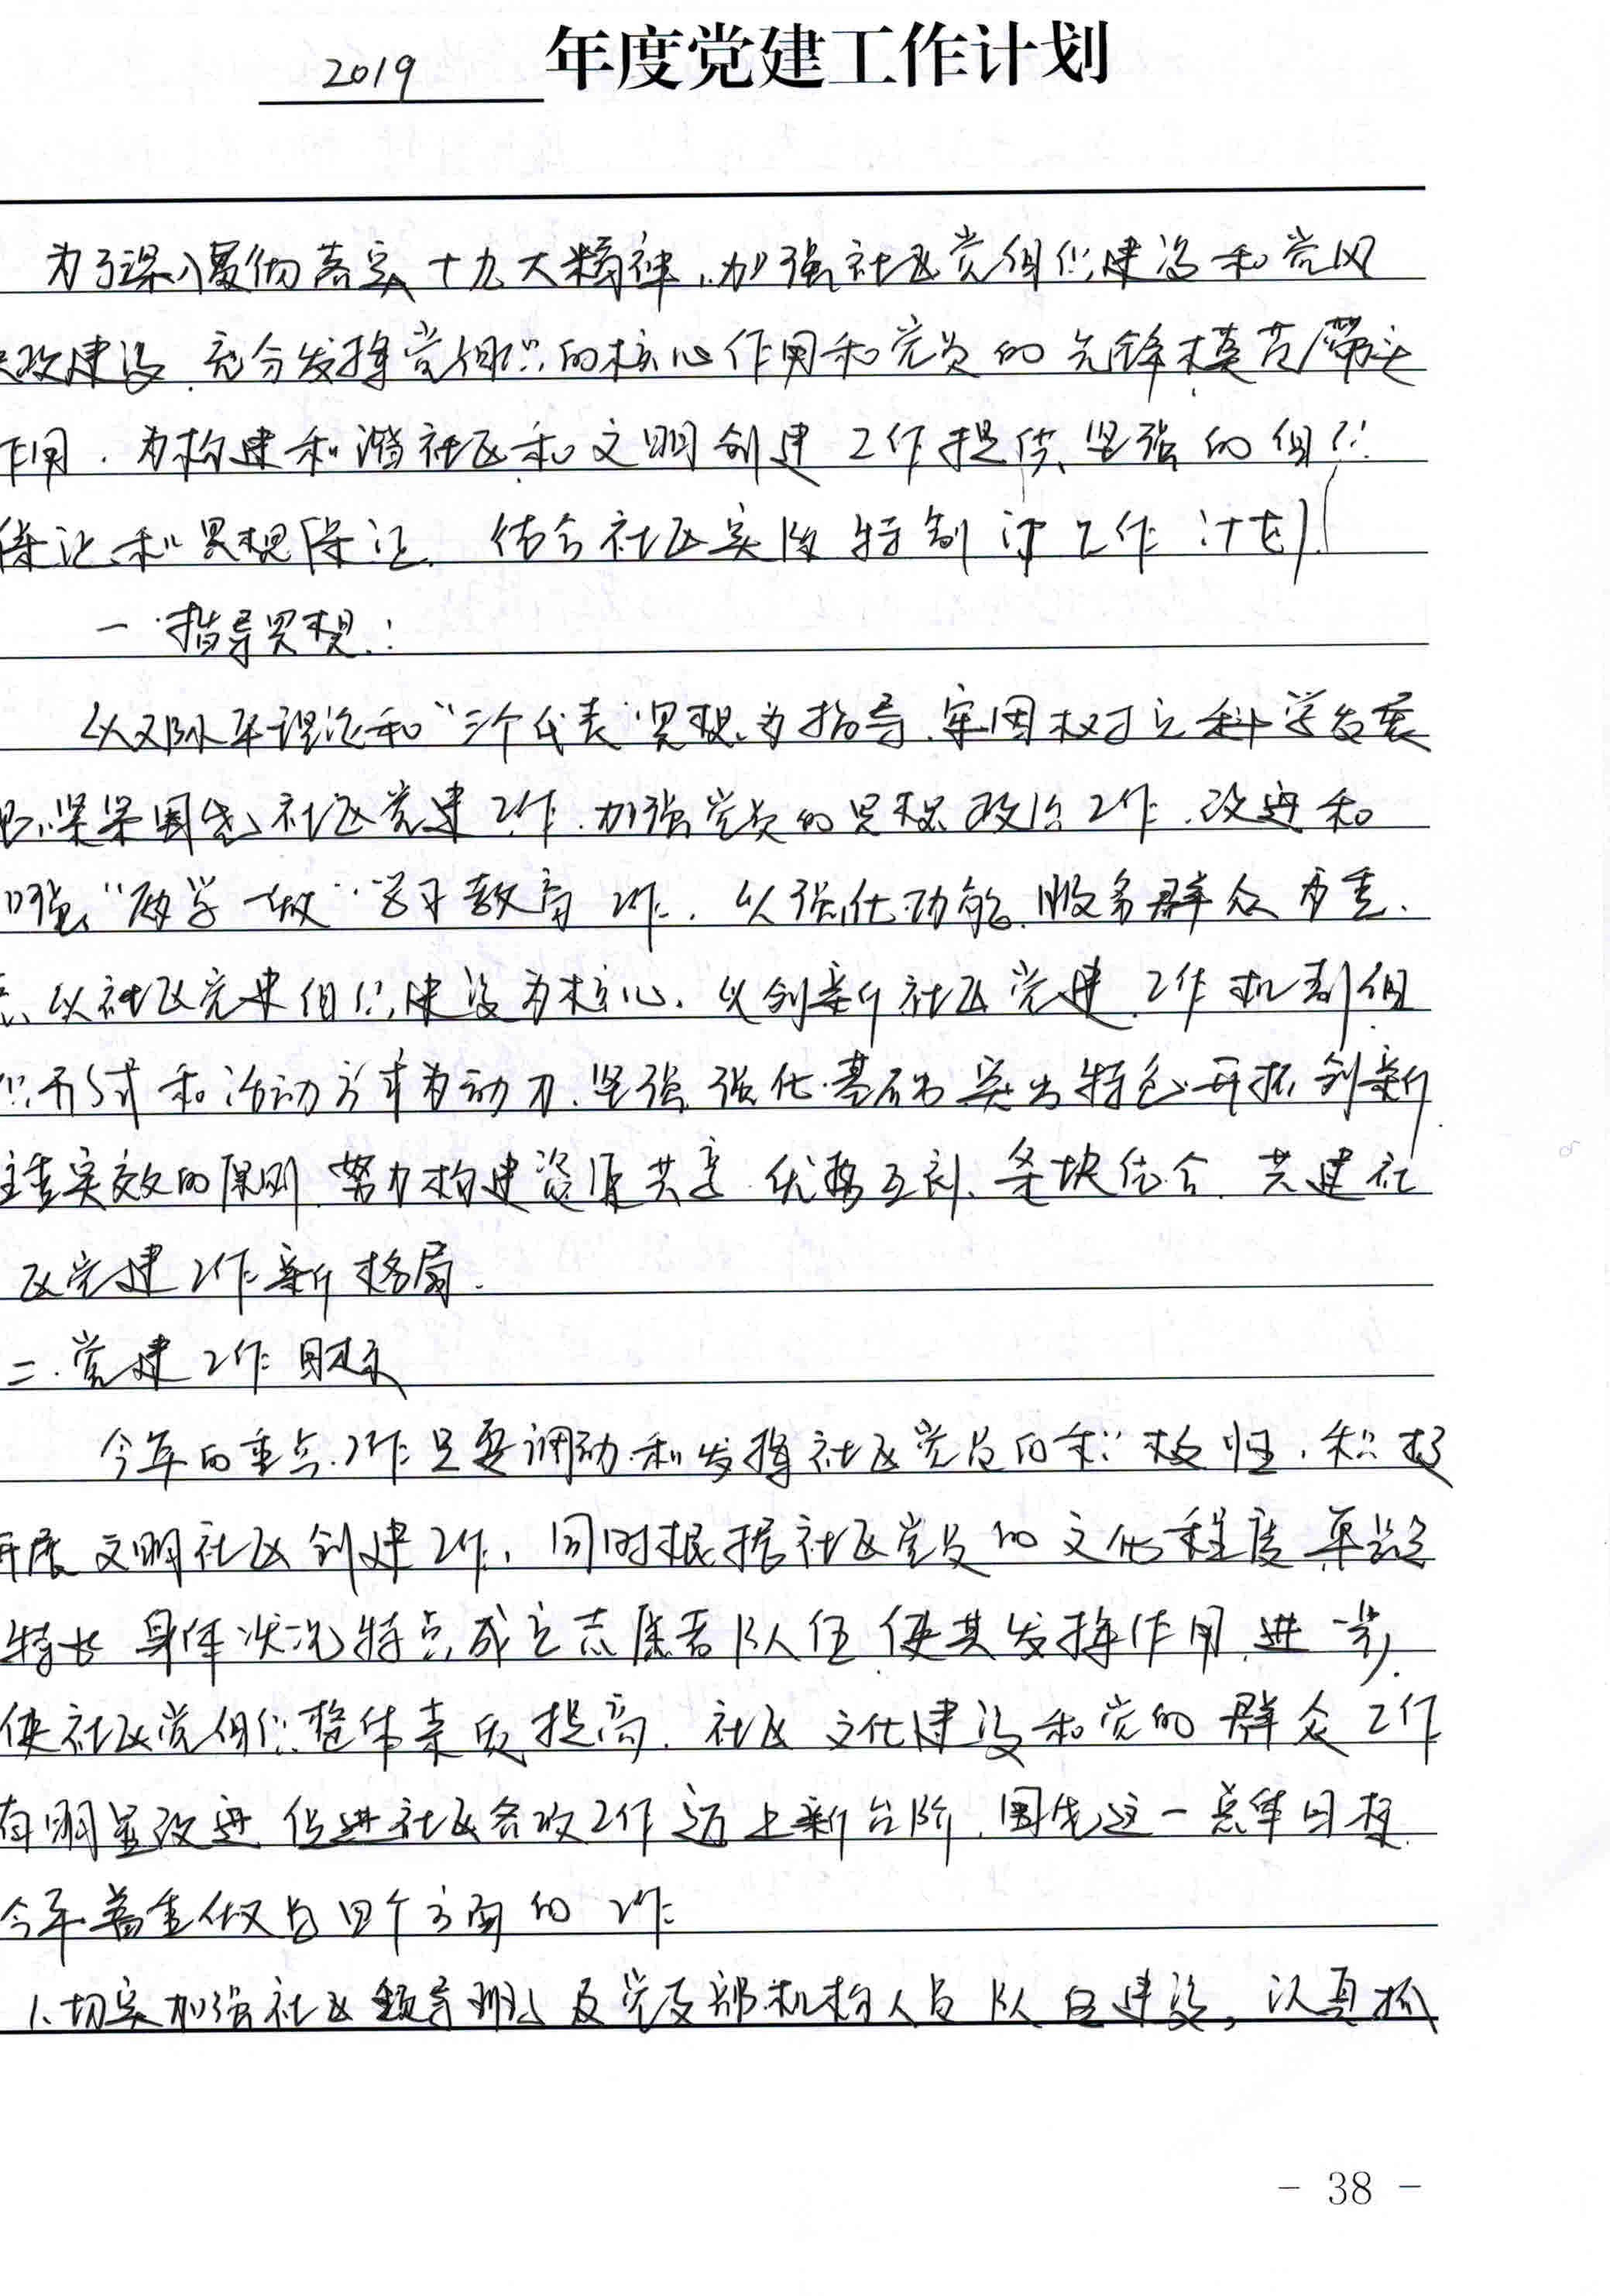 2019 年度党建工作计划
为了深入贯彻落实十九大精神,加强社区党组织建设和党风
政建设,充分发挥党组织的核心作用和党员的先锋模范带头
作用,为构建和谐社区和文明创建工作提供坚强的组织
保证和思想保证,结合社区实际特制订工作计划
一、指导思想:
以邓小平理论和“三个代表”思想为指导,牢固树立科学发展
观,紧紧围绕社区党建工作,加强党员的思想政治工作,改进和
加强“两学一做”学习教育工作,以强化功能,服务群众为重
点,以社区党建组织建设为核心,以创新社区党建工作机制组
织形式和活动方式为动力,坚强强化基础,突出特色,开拓创新
注重实效的原则,努力构建资源共享,优势互补,条块结合,共建社
区党建工作新格局.
二.党建工作目标
今年的重点工作是要调动和发挥社区党员的积极性,积极
开展文明社区创建工作,同时根据社区党员的文化程度
特长 身体状况特点,成立志愿者队伍,使其发挥作用,进一步,
使社区党组织整体素质提高,社区文化建设和党的群众工作
有明显改进 促进社区各项工作迈上新台阶,围绕这一总体目标
今年着重做好四个方面的工作
1、切实加强社区领导班子及党支部机构人员队伍建设,认真抓
- 38 -